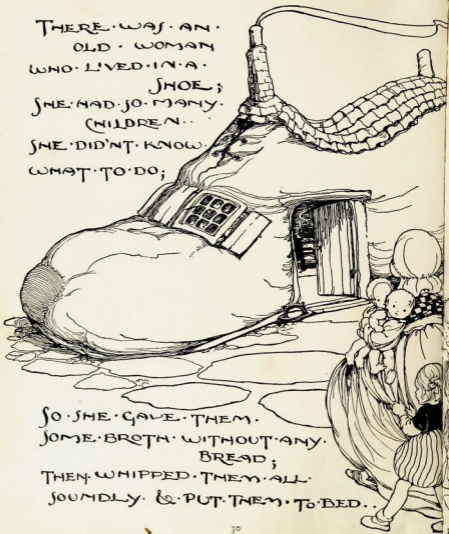 THERE·WAS·AN·
OLD·WOMAN
WHO·LIVED·IN·A·
SHOE;
SHE·HAD·SO·MANY·
CHILDREN··
SHE·DID'NT·KNOW·
WHAT·TO·DO;
SO·SHE·GAVE·THEM·
SOME·BROTH·WITHOUT·ANY·
BREAD;
THEN·WHIPPED·THEM·ALL·
SOUNDLY·&·PUT·THEM·TO·BED··
30